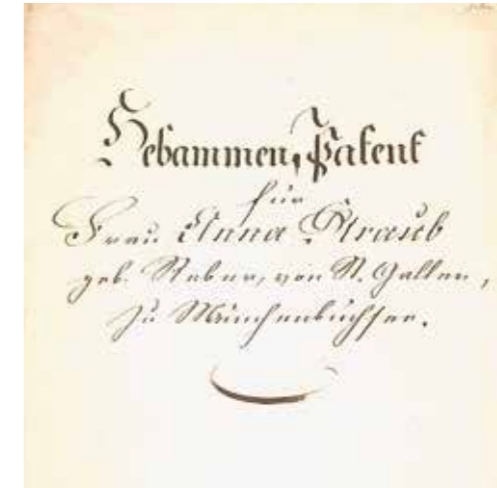 Hebammen-Patent
für
Frau Anna Straub
geb. Raber, von St. Gallen,
zu Münchenbuchsee.